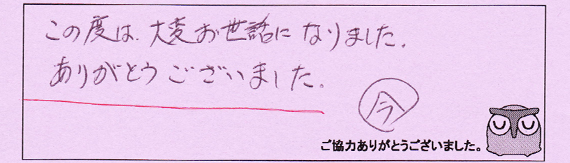 この度は、大変お世話になりました。
ありがとうございました。
今
ご協力ありがとうございました。